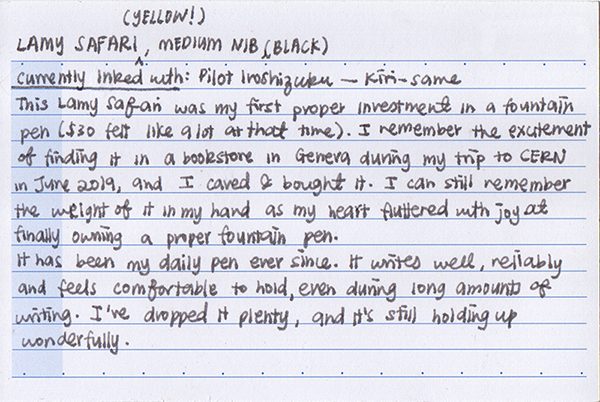 (YELLOW!)
LAMY SAFARI, MEDIUM NIB (BLACK)
Currently inked with: Pilot Iroshizuku — Kiri-same
This Lamy Safari was my first proper investment in a fountain
pen ($30 felt like a lot at that time). I remember the excitement
of finding it in a bookstore in Geneva during my trip to CERN
in June 2019, and I caved & bought it. I can still remember
the weight of it in my hand as my heart fluttered with joy at
finally owning a proper fountain pen.
It has been my daily pen ever since. It writes well, reliably
and feels comfortable to hold, even during long amounts of
writing. I've dropped it plenty, and it's still holding up
wonderfully.